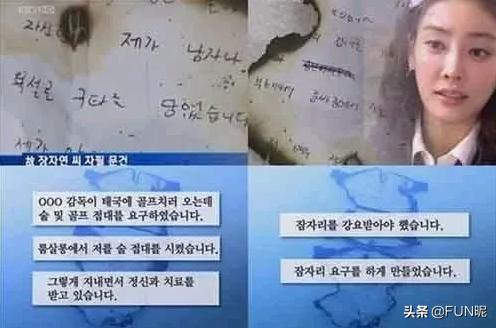 KBS
자신
제가 남자나
욕설로 구타를
당했습니다
제가
故 장자연 씨 자필 문건
OOO 감독이 태국에 골프치러 오는데
술 및 골프 접대를 요구하였습니다.
룸살롱에서 저를 술 접대를 시켰습니다.
그렇게 지내면서 정신과 치료를
받고 있습니다.
잠자리를 강요받아야 했습니다.
잠자리 요구를 하게 만들었습니다.
头条 @FUN昵